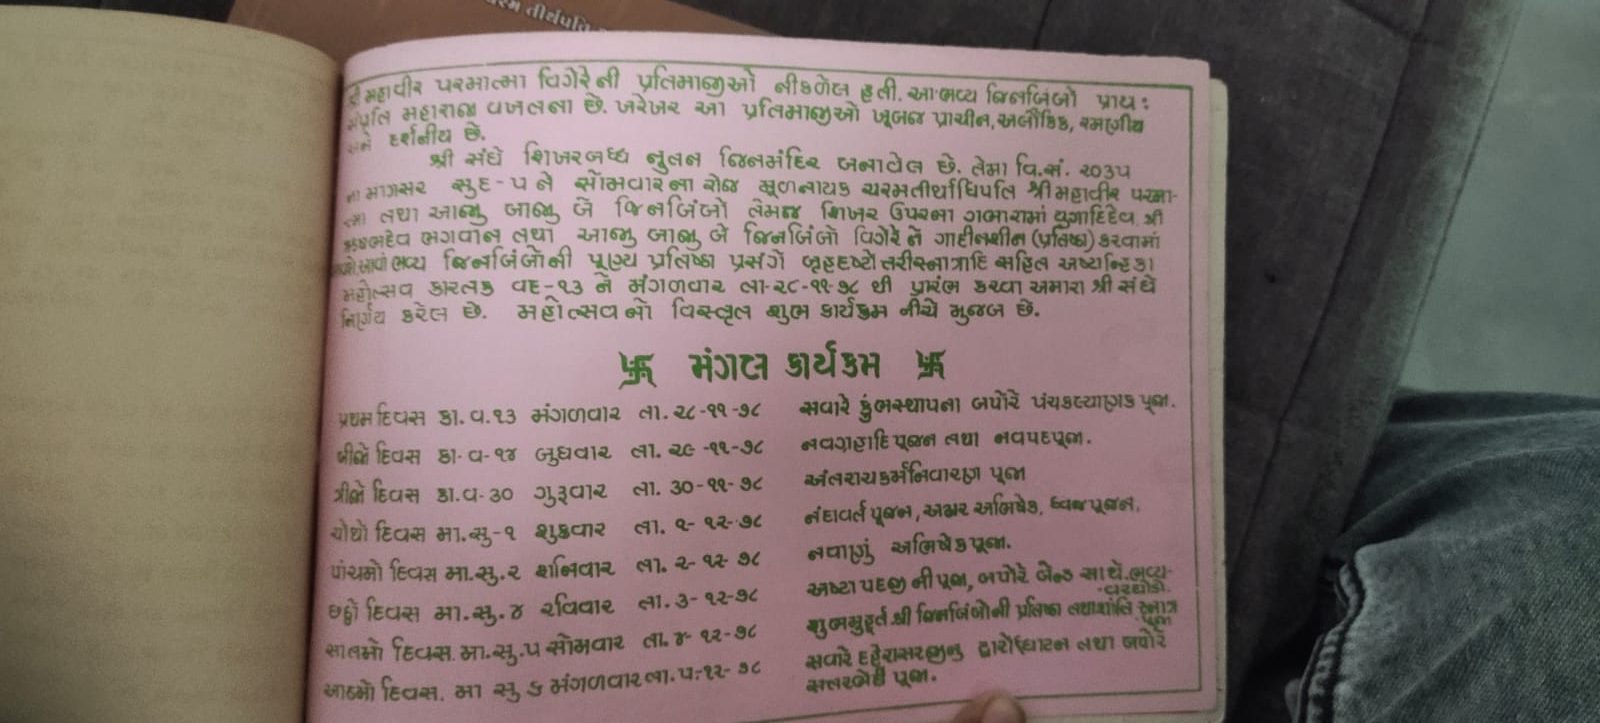 ચરમ તીર્થપતિ
શ્રી મહાવીર પરમાત્મા વિગેરેની પ્રતિમાજીઓ નીકળેલ હતી. આ ભવ્ય જિનબિંબો પ્રાયઃ
સંપ્રતિ મહારાજા વખતના છે. ખરેખર આ પ્રતિમાજીઓ ખૂબજ પ્રાચીન, અલૌકિક, રમણીય
અને દર્શનીય છે.
શ્રી સંઘે શિખરબધ્ધ નુતન જિનમંદિર બનાવેલ છે. તેમા વિ.સં. ૨૦૩૫
ના માગસર સુદ-૫ ને સોમવારના રોજ મૂળનાયક ચરમતીર્થાધિપતિ શ્રી મહાવીર પરમા-
ત્મા તથા આજુ બાજુ બે જિનબિંબો તેમજ શિખર ઉપરના ગભારામાં યુગાદિદેવ શ્રી
ઋષભદેવ ભગવાન તથા આજુ બાજુ બે જિનબિંબો વિગેરે ને ગાદીનશીન (પ્રતિષ્ઠા) કરવામાં
આવશે. આવાં ભવ્ય જિનબિંબોની પૂણ્ય પ્રતિષ્ઠા પ્રસંગે બૃહદષ્ટોત્તરીસ્નાત્રાદિ સહિત અષ્ટાન્હિકા
મહોત્સવ કારતક વદ-૧૩ ને મંગળવાર તા-૨૮-૧૧-૭૮ થી પ્રારંભ કરવા અમારા શ્રી સંઘે
નિર્ણય કરેલ છે. મહોત્સવનો વિસ્તૃત શુભ કાર્યક્રમ નીચે મુજબ છે.
卐 મંગલ કાર્યક્રમ 卐
પ્રથમ દિવસ કા. વ. ૧૩ મંગળવાર તા. ૨૮-૧૧-૭૮ સવારે કુંભસ્થાપના બપોરે પંચકલ્યાણક પૂજા.
બીજો દિવસ કા-વ-૧૪ બુધવાર તા. ૨૯-૧૧-૭૮ નવગ્રહાદિ પૂજન તથા નવપદપૂજા.
ત્રીજો દિવસ કા.વ-૩૦ ગુરૂવાર તા. ૩૦-૧૧-૭૮ અંતરાયકર્મનિવારણ પૂજા
ચોથો દિવસ મા.સુ-૧ શુક્રવાર તા. ૧-૧૨-૭૮ નંદાવર્ત પૂજન, અઢાર અભિષેક, ધ્વજપૂજન.
પાંચમો દિવસ મા.સુ.૨ શનિવાર તા. ૨-૧૨-૭૮ નવાણું અભિષેકપૂજા.
છઠ્ઠો દિવસ મા.સુ.૪ રવિવાર તા.૩-૧૨-૭૮ અષ્ટાપદજીની પૂજા, બપોરે બેન્ડ સાથે ભવ્ય-
વરઘોડો.
સાતમો દિવસ. મા.સુ.૫ સોમવાર તા. ૪-૧૨-૭૮ શુભમુહૂર્ત શ્રી જિનબિંબોની પ્રતિષ્ઠા તથા શાંતિ સ્નાત્ર
પૂજા
આઠમો દિવસ. મા સુ ૬ મંગળવાર તા. ૫-૧૨-૭૮ સવારે દહેરાસરજીનુ દ્વારોદ્ઘાટન તથા બપોરે
સત્તરભેદી પૂજા.